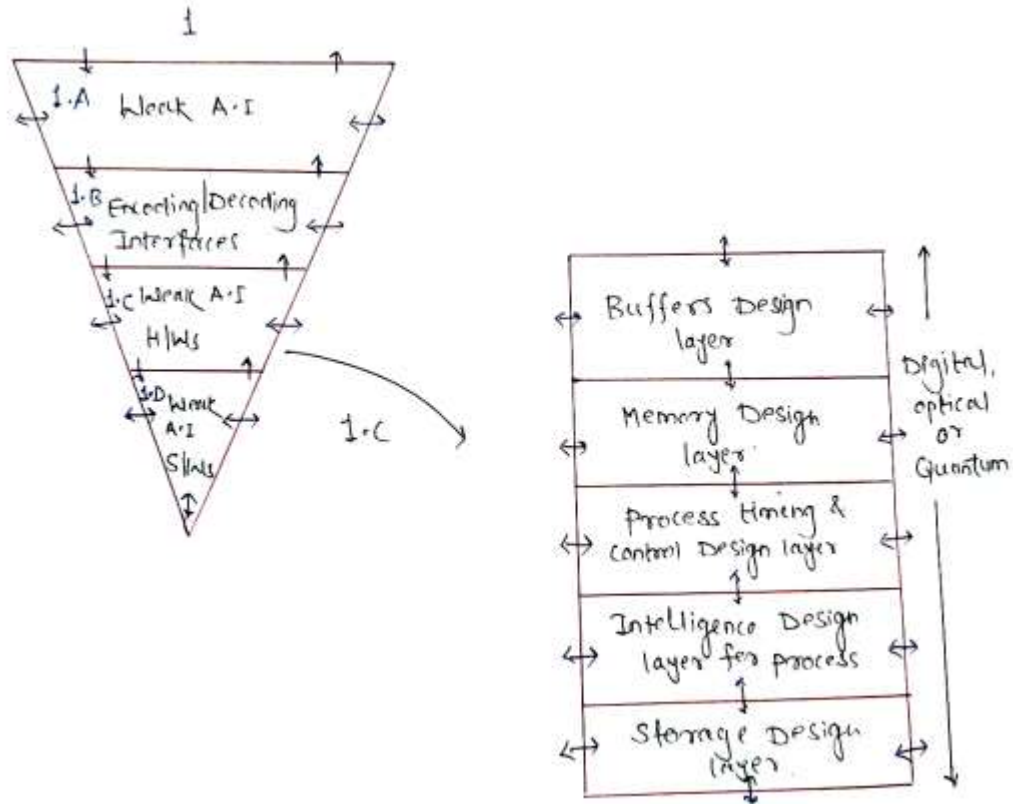 1
1.A Weak A.I
1.B Encoding/Decoding
Interfaces
1.C Weak A.I
H/Ws
1.D Weak
A.I
S/Ws
1.C
Buffers Design
layer
Memory Design
layer.
Process timing &
control Design layer
Intelligence Design
layer for process
Storage Design
layer.
Digital,
optical
or
Quantum